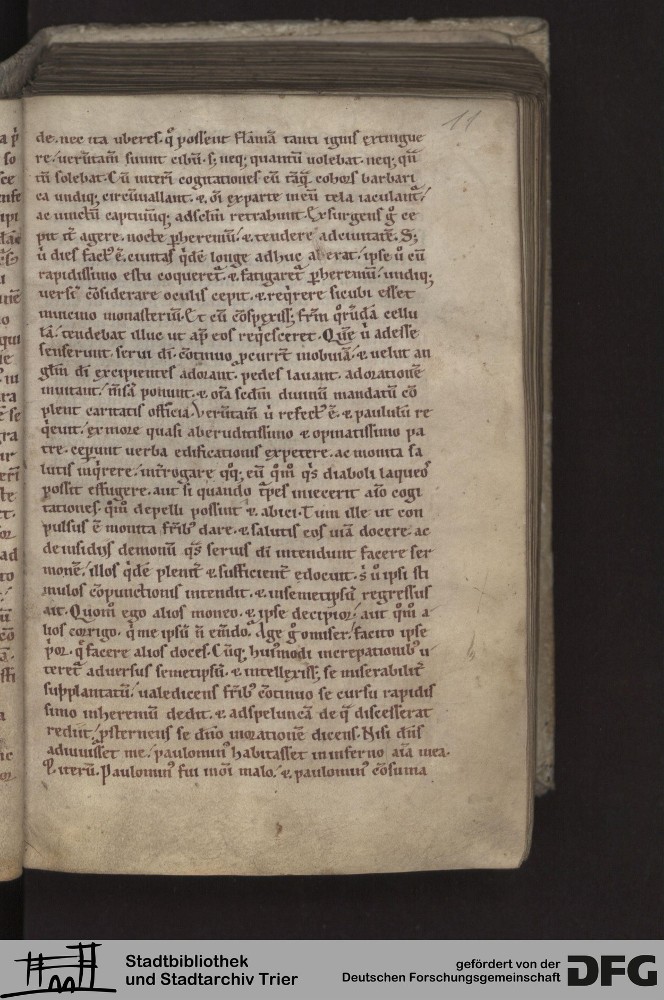 11
de. nec ita uberes. q̇ possent flāmā tanti ignis extingue
re. uerūtam̄ fuunt cibū. s; neq; quantū uolebat. neq; quā
tū solebat. Cū interī cogitationes eū tāq̄ cohors barbari
ca undiq; circūuallant. & om̄i ex parte in eū tela iaculant̄
ac uinctū captiuūq; ad selm̄ retrahunt. Exsurgens g̊ ce
pit it̄ agere. nocte ꝑ heremū. & tendere ad ciuitatē. S;
ů dies fact᷒ ē. ciuitas q̇dē longe adhuc aberat. ipse ů cū
rapidissimo estu coqueret᷑. & fatigaret᷑ ꝑ heremū. undiq;
uersū cōsiderare oculis cepit. & reqͥrere sicubi esset
uincino monasteriū. Et cū cōspexiss; fr̄m qͦrūdā cellu
lā. tendebat illuc ut ap̄ eos reqͥesceret. Quē ů adesse
senserunt. serui dī. cōtinuo ꝓcurrt̄ in obuiā. & uelut an
gl̄m dī excipientes adorant. pedes lauant. ad orationē
inuitant. m̄sā ponunt. & om̄ia sedm̄ diuinū mandatū cō
plent caritatis officia. Verūtam̄ ů refect᷒ ē. & paululū re
qͥeuit. ex more quasi ab eruditissimo & opinatissimo pa
tre. ceperunt uerba edificationis expetere. ac monita sa
lutis inqͥrere. int̄rogare qͦq; eū qͦm̊ qͥs diaboli laqueos
possit effugere. aut si quando t̄pes iniecerit aīo cogi
tationes. qͦm̊ depelli possint & abici. Tum ille ut con
pulsus ē monita fr̄ib᷒ dare. & salutis eos uiā docere. ac
de insidiis demonū qͣs seruis dī intendunt facere ser
monē. illos qͥdē plenit̄ & sufficient̄ edocuit. s; ů ipsi sti
mulos cōpunctionis intendit. & in semetipsū regressus
ait. Quom̊ ego alios moneo. & ipse decipior. aut qͦm̊ a
lios corrigo. qͥ me ipsū n̄ em̄do. Age g̊ o miser. facito ipse
p̊r. q̄ facere alios doces. Cūq; hui᷒modi increpationib᷒ u
teret᷑ aduersus semetipsū. & intellexiss; se miserabilit̄
supplantatū. ualedicens fr̄ib᷒ cōtinuo se cursu rapidis
simo in heremū dedit. & ad speluncā de qͣ discesserat
rediit. ꝓsternens se dn̄o in oratione dicens. Nisi dn̄s
adiuuisset me. paulomin᷒ habitasset in inferno aīa mea.
& iterū. Paulomin᷒ fui in om̄i malo. & paulomin᷒ cōsuma
Stadtbibliothek
und Stadtarchiv Trier
gefördert von der
Deutschen Forschungsgemeinschaft
DFG